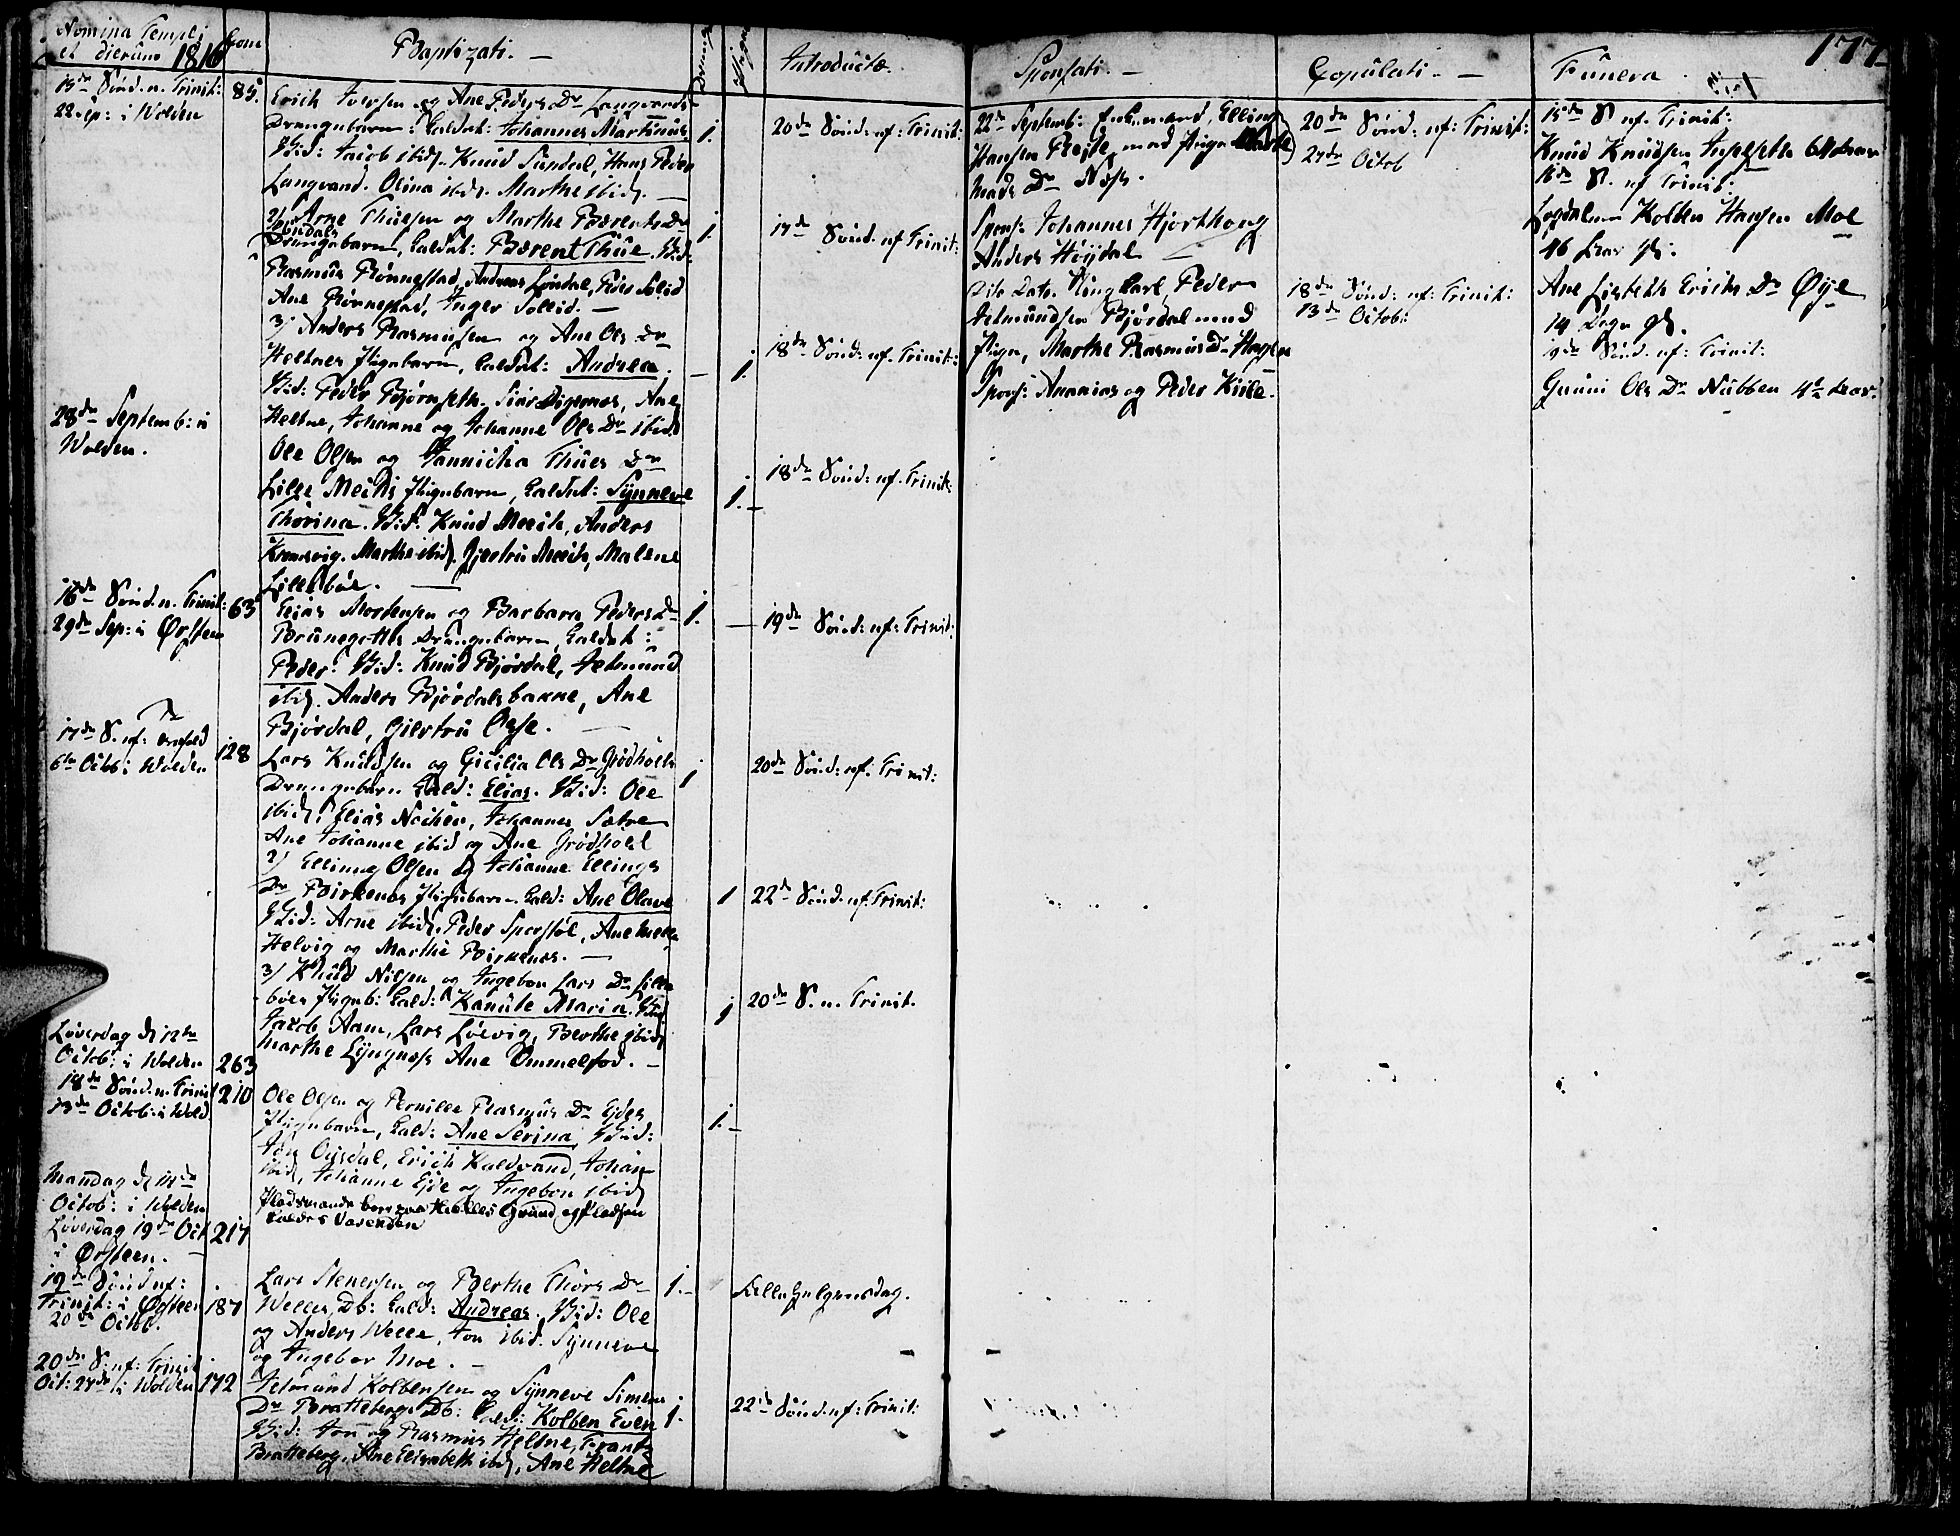 Nomina Templi
et dierum 1816
Com
Baptizati. —
Drenge
Piger
Introductæ.
Sponsati. —
Copulati. —
Funera.
177
15de Sönd. n. Trinit:
22 Sep: i Wolden
85.
Erich Iversen og Ane Peders Dr Langvands
Drengebarn: kaldet: Johannes Martinus
Vid: Jacob ibid. Knud Sundal, Hans Peder
Langvand. Olina ibid. Marthe ibid.
1.
20de Sönd: ef: Trinit:
2/ Arne Thuesen og Marthe Bærents Dr
Løndals
Drengebarn, kaldet: Bærent Thue. Vid:
Rasmus Rønnestad, Andreas Løndal, Peder Solid
Ane Rønnestad, Inger Sollid. —
1.
17de Sönd. ef Trinit:
3/ Anders Rasmusen og Ane Ols Dr
Heltnes Pigebarn, kaldet: Andrea.
Vid: Peder Bjørneseth. Siur Digernes, Ane
Heltne, Johanne og Johanne Ols Dr ibid
1.
18de Sönd: ef. Trinit:
28de Septemb: i
Wolden.
Ole Olsen og Jannicha Thues Dr
Lille Meehs Pigebarn, kaldet: Synneve
Thorina. Vid: Knud Meeh, Anders
Marthe ibid. Gjertru Meeh, Malene
Lillebøe. —
1.
18de Sönd: ef. Trinit:
16de Sönd. n. Trinit:
29de Sep: i Ørsten
63
Elias Mortensen og Barbara Peders Dr
Drengebarn, kaldet:
Peder: Vid: Knud Bjørdal, Jetmund
ibid. Anders Bjørdalsbakne, Ane
Bjørdal, Gjertru
1.
19de Sönd: ef: Trinit:
17de S. ef:
6te Octb: i Wolden
128
Lars Knudsen og Cicilia Ols Dr Grødholts
Drengebarn kald: Elias. Vid: Ole
ibid, Elias Johannes Sætre
Ane Johanne ibid og Ane Grødholt
1
20de Sönd: ef. Trinit:
2/ Elling Olsen og Johanne Ellings
Dr Birkenes Pigebarn. kald: Ane Olave
Vid: Arne ibid. Peder Sporstøl, Ane
Helvig og Marthe Birkenes. —
1
22de Sönd. ef: Trinit:
3/ Knud Nilsen og Ingebor Lars Dr Lille
bøes Pigeb: kald: Kanute Maria. Vid
Jacob Aam, Lars Løevig, Berthe ibid
Marthe Lyngnæss Ane Ommelstad. —
1
20de S. n. Trinit.
Løverdag d 12te
Octob: i Wolden
263
18de Sönd. n. Trinit
13de Octob: i Wold
210
Ole Olsen og Pernille Rasmus Dr Ejdes
Pigebarn, kald: Ane Serina Vid:
Jon Erich Kaldvand, Johan
ibid, Johanne Ejde og Ingebor ibid
Pladsmands Grund og Pladsen
kaldes
1.
Mandag d 14de
Octob: i Wolden
Løverdag 19de Oct
i Ørsteen.
217
19de Sönd ef:
Trinit: i Ørsteen
20de Octob.
187
Lars Stenersen og Berthe Thors Dr
Welles, Db: kald: Andreas. Vid: Ole
og Anders Welle, Jon ibid. Synneve
og Ingebor Moe. —
1.
Allehelgensdag.
20de S. ef: Trinit
Oct: 27de i Wolden
172
Jetmund Kolbensen og Synneve Simens
Dr Brattebergs Db: kald: Kolben Even
Vid: Jon og Rasmus Heltne, Frantz
Bratteberg, Ane Elisabeth ibid, Ane Heltne
1.
22de Sönd. ef: Trinit:
22de Septemb: Enkemand, Elling
Hansen med Pige
Mads Dr Næss.
Spons: Johannes Hjorthoug
Anders Høydal
Dito Dato. Ung karl Peder
Jetmundsen Bjørdal med
Pige, Marthe Rasmus Dr Hagen
Spons: Ananias og Peder Kiile.
20de Sönd: ef: Trinit:
27de Octob
18de Sönd: ef: Trinit:
13de Octob:
15de S ef. Trinit:
Knud Knudsen
16de S. ef Trinit:
Kolben Hansen Moe
46 Aar gl:
Ane Lisbeth Erichs Dr Øye
14 Dage gl.
19de Sönd. ef: Trinit:
Guuni Ols Dr Nubben